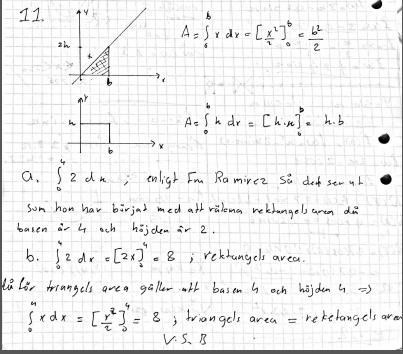 11.
y
2h
x
b
A = ∫₀ᵇ x dx = [x²/2]₀ᵇ = b²/2
y
h
b
x
A = ∫₀ᵇ h dx = [h·x]₀ᵇ = h·b
a. ∫₀⁴ 2 dx ; enligt Fru Ramirez så det ser ut
som hon har börjat med att räkna rektangels area då
basen är 4 och höjden är 2.
b. ∫₀⁴ 2 dx = [2x]₀⁴ = 8 ; rektangels area.
då för triangels area gäller att basen 4 och höjden 4 =>
∫₀⁴ x dx = [x²/2]₀⁴ = 8 ; triangels area = reketangels area
V.S.B